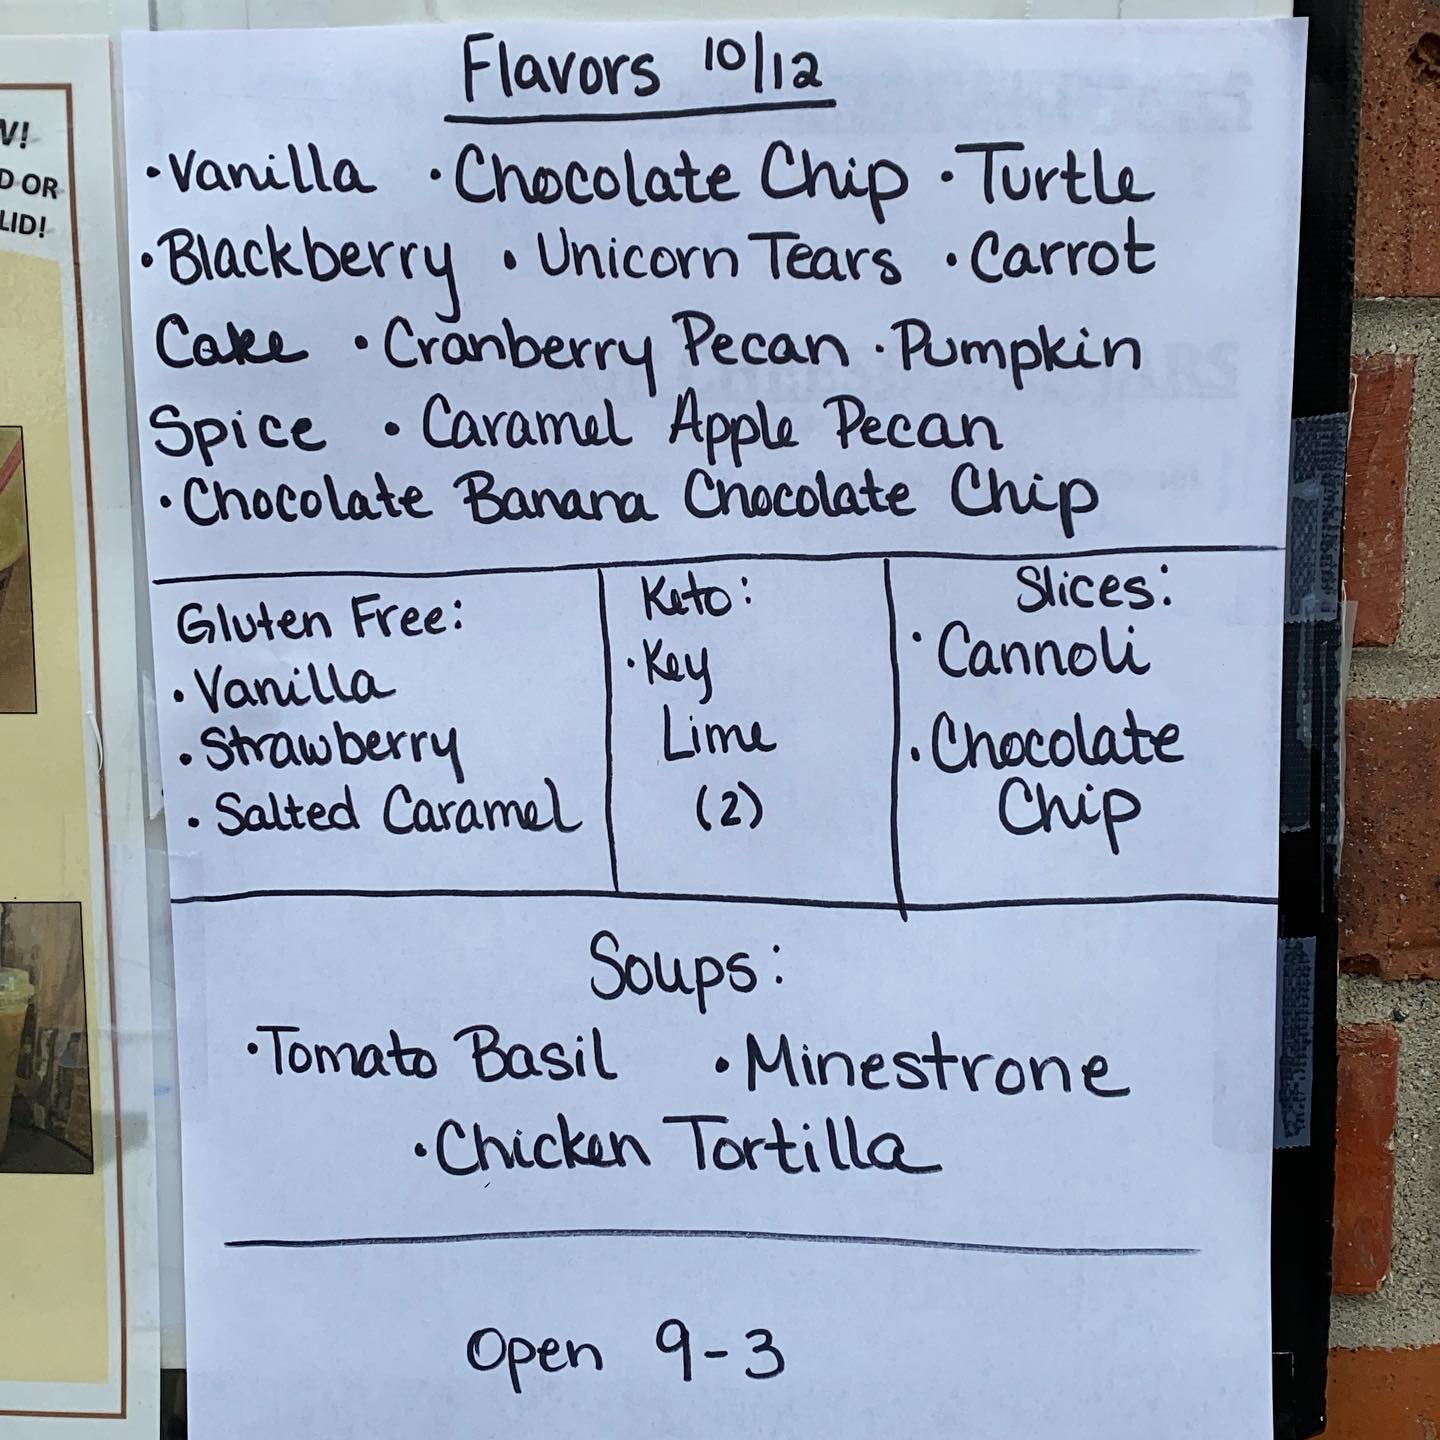 Flavors 10/12
•Vanilla •Chocolate Chip •Turtle
•Blackberry •Unicorn Tears •Carrot
Cake •Cranberry Pecan •Pumpkin
Spice •Caramel Apple Pecan
•Chocolate Banana Chocolate Chip
Gluten Free:
•Vanilla
•Strawberry
•Salted Caramel
Keto:
•Key
Lime
(2)
Slices:
•Cannoli
•Chocolate
Chip
Soups:
•Tomato Basil •Minestrone
•Chicken Tortilla
Open 9-3
OR
LID!